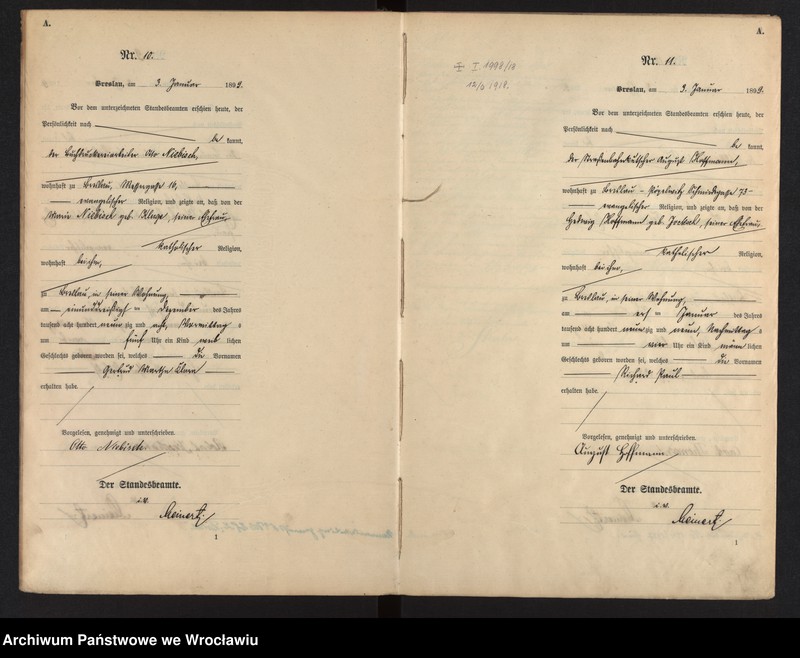 A.
Nr. 10.
Breslau, am 3. Januar 1899.
Vor dem unterzeichneten Standesbeamten erschien heute, der
Persönlichkeit nach
be kannt,
der Buchdruckereiarbeiter Otto Niebisch,
wohnhaft zu Breslau, Messergasse 10,
evangelischer Religion, und zeigte an, daß von der
Marie Niebisch geb. Kluge, seiner Ehefrau,
katholischer Religion,
wohnhaft bei ihm,
zu Breslau, in seiner Wohnung,
am einunddreißigsten Dezember des Jahres
tausend acht hundert neunzig und acht, Vormittag s
um fünf Uhr ein Kind weib lichen
Geschlechts geboren worden sei, welches die Vornamen
Gertrud Martha Klara
erhalten habe.
Vorgelesen, genehmigt und unterschrieben.
Otto Niebisch
Der Standesbeamte.
i. V.
Meinert.
1
A.
Nr. 11.
I. 1998/18
1918.
Breslau, am 3. Januar 1899.
Vor dem unterzeichneten Standesbeamten erschien heute, der
Persönlichkeit nach
be kannt,
der Straßenbahnkutscher August Hoffmann,
wohnhaft zu Breslau - Pöpelwitz 73
evangelischer Religion, und zeigte an, daß von der
Hedwig Hoffmann geb. seiner Ehefrau
katholischer Religion,
wohnhaft bei ihm,
zu Breslau, in seiner Wohnung,
am ersten Januar des Jahres
tausend acht hundert neunzig und neun, Nachmittag s
um vier Uhr ein Kind männ lichen
Geschlechts geboren worden sei, welches die Vornamen
Richard Paul
erhalten habe.
Vorgelesen, genehmigt und unterschrieben.
August Hoffmann
Der Standesbeamte.
i. V.
Meinert.
1
Archiwum Państwowe we Wrocławiu